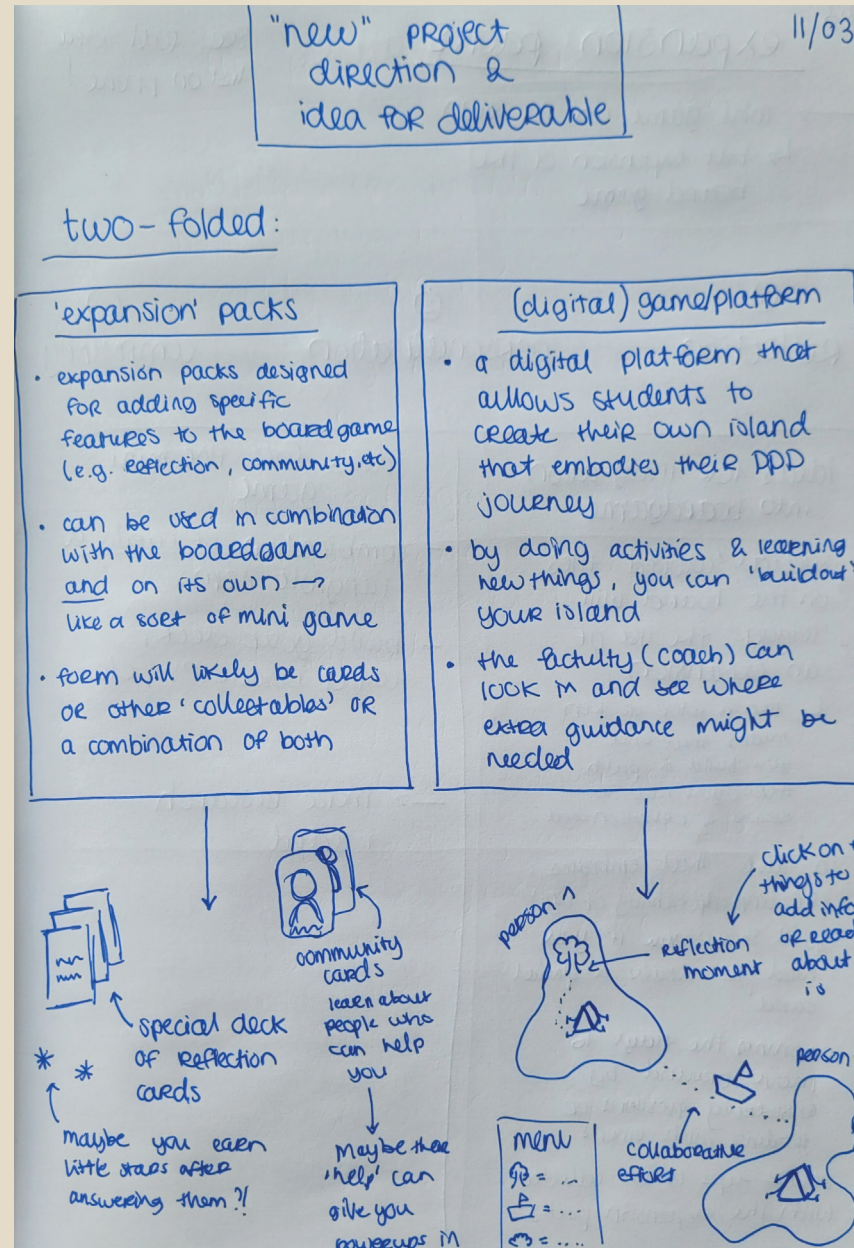 "new" project
direction &
idea for deliverable
11/03
two-folded:
'expansion' packs
• expansion packs designed
for adding specific
features to the boardgame
(e.g. reflection, community, etc)
• can be used in combination
with the boardgame
and on its own →
like a sort of mini game
• form will likely be cards
or other 'collectables' or
a combination of both
(digital) game/platform
• a digital platform that
allows students to
create their own island
that embodies their PPD
journey
• by doing activities & learning
new things, you can 'buildout'
your island
• the factulty (coach) can
look in and see where
extra guidance might be
needed
special deck
of reflection
cards
maybe you earn
little stars after
answering them?!
community
cards
learn about
people who
can help
you
Maybe there
'help' can
give you
powerups in
person 1
reflection
moment
click on
things to
add info
or read
about
is
person
collaborative
effort
menu
= ....
= ....
= ....